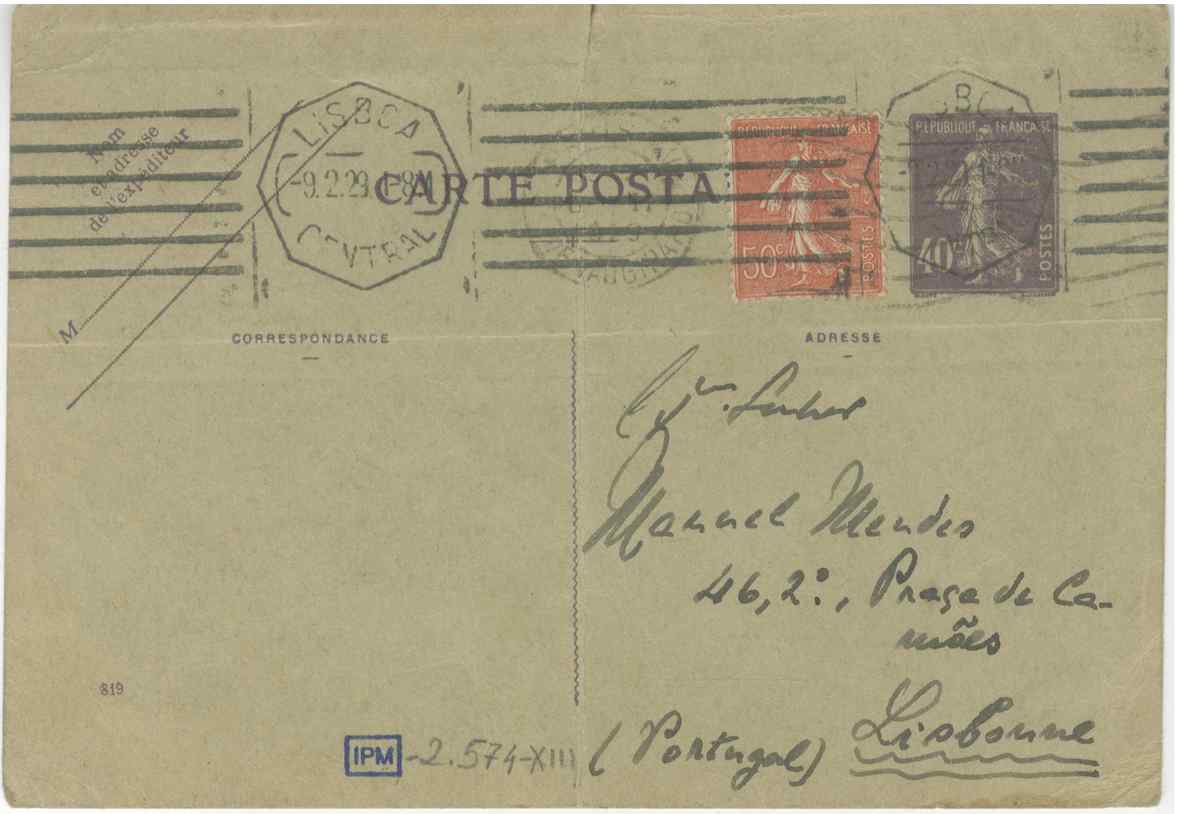 Nom
et adresse
de l'expéditeur
M
LISBOA
-9.2.29
CENTRAL
CARTE POSTA
RÉPUBLIQUE FRANÇAISE
50c
POSTES
RÉPUBLIQUE FRANÇAISE
40c
POSTES
CORRESPONDANCE
ADRESSE
Manuel Mendes
46, 2º., Praça de Ca-
mões
Lisbonne
(Portugal)
819
IPM -2.574-XIII